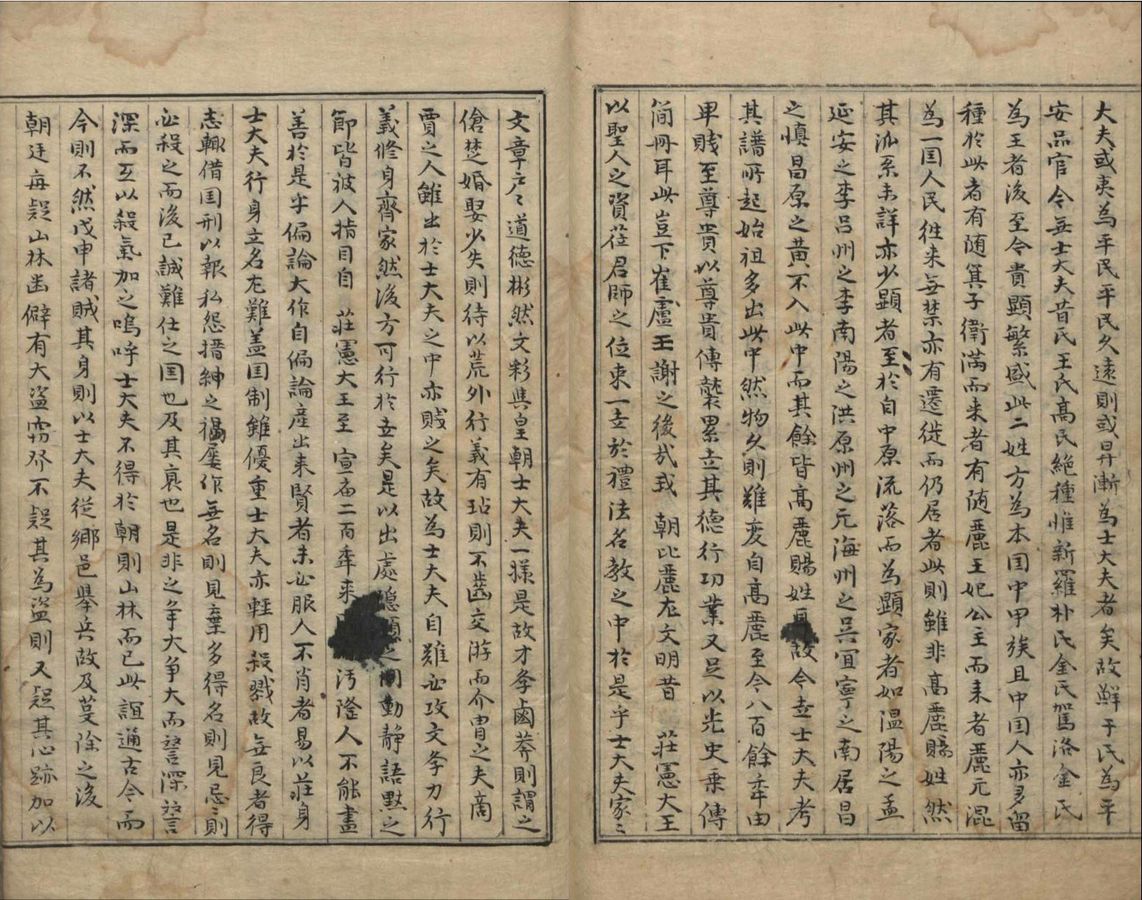 大夫或夷為平民平民久遠則或昇漸為士大夫者矣故鮮于氏為平
安品官今無士大夫昔氏王氏高氏絶種惟新羅朴氏金氏駕洛金氏
為王者後至今貴顯繁盛此二姓方為本囯中甲族且中囯人亦多留
種於此者有随箕子衛滿而来者有随麗王妃公主而来者麗元混
為一囯人民徃来無禁亦有遷徙而仍居者此則雖非高麗賜姓然
其泒系未詳亦少顯者至於自中原流落而為顯家者如温陽之孟
延安之李吕州之李南陽之洪原州之元海州之吳宜寧之南居昌
之慎昌原之黄不入此中而其餘皆高麗賜姓故今世士大夫考
其譜所起始祖多出此中然物久則難変自高麗至今八百餘年由
卑賎至尊貴以尊貴傳襲累立其德行功業又足以光史乗傳
简冊耳此豈下崔盧王謝之後㢤我 朝比麗尤文明昔 莊憲大王
以聖人之資莅君師之位束一世於禮法名教之中於是乎士大夫家〻
文章户〻道德彬然文彩與皇朝士大夫一様是故才李鹵莽則謂之
傖楚婚娶少失則待以荒外行義有玷則不齒交游而介胄之夫商
賈之人雖出於士大夫之中亦賎之矣故為士大夫自雖必攻文李力行
義修身齊家然後方可行於世矣是以出處隱顯之間動静語默之
節皆被人指目自 莊憲大王至 宣庙二百年来汚隆人不能盡
善於是乎偏論大作自偏論産出来賢者未必服人不肖者易以莊身
士大夫行身立名尤難盖囯制雖優重士大夫亦輕用殺戮故無良者得
志輙借囯刑以報私怨搢紳之禍屢作無名則見棄多得名則見忌〻則
必殺之而後已誠難仕之囯也及其衰也是非之争大争大而讐深讐
深而互以殺氣加之嗚呼士大夫不得於朝則山林而已此誼通古今而
今則不然戊申諸賊其身則以士大夫從鄉邑擧兵故及蔓除之後
朝廷毎疑山林幽僻有大盗窃發不疑其為盗則又疑其心跡加以